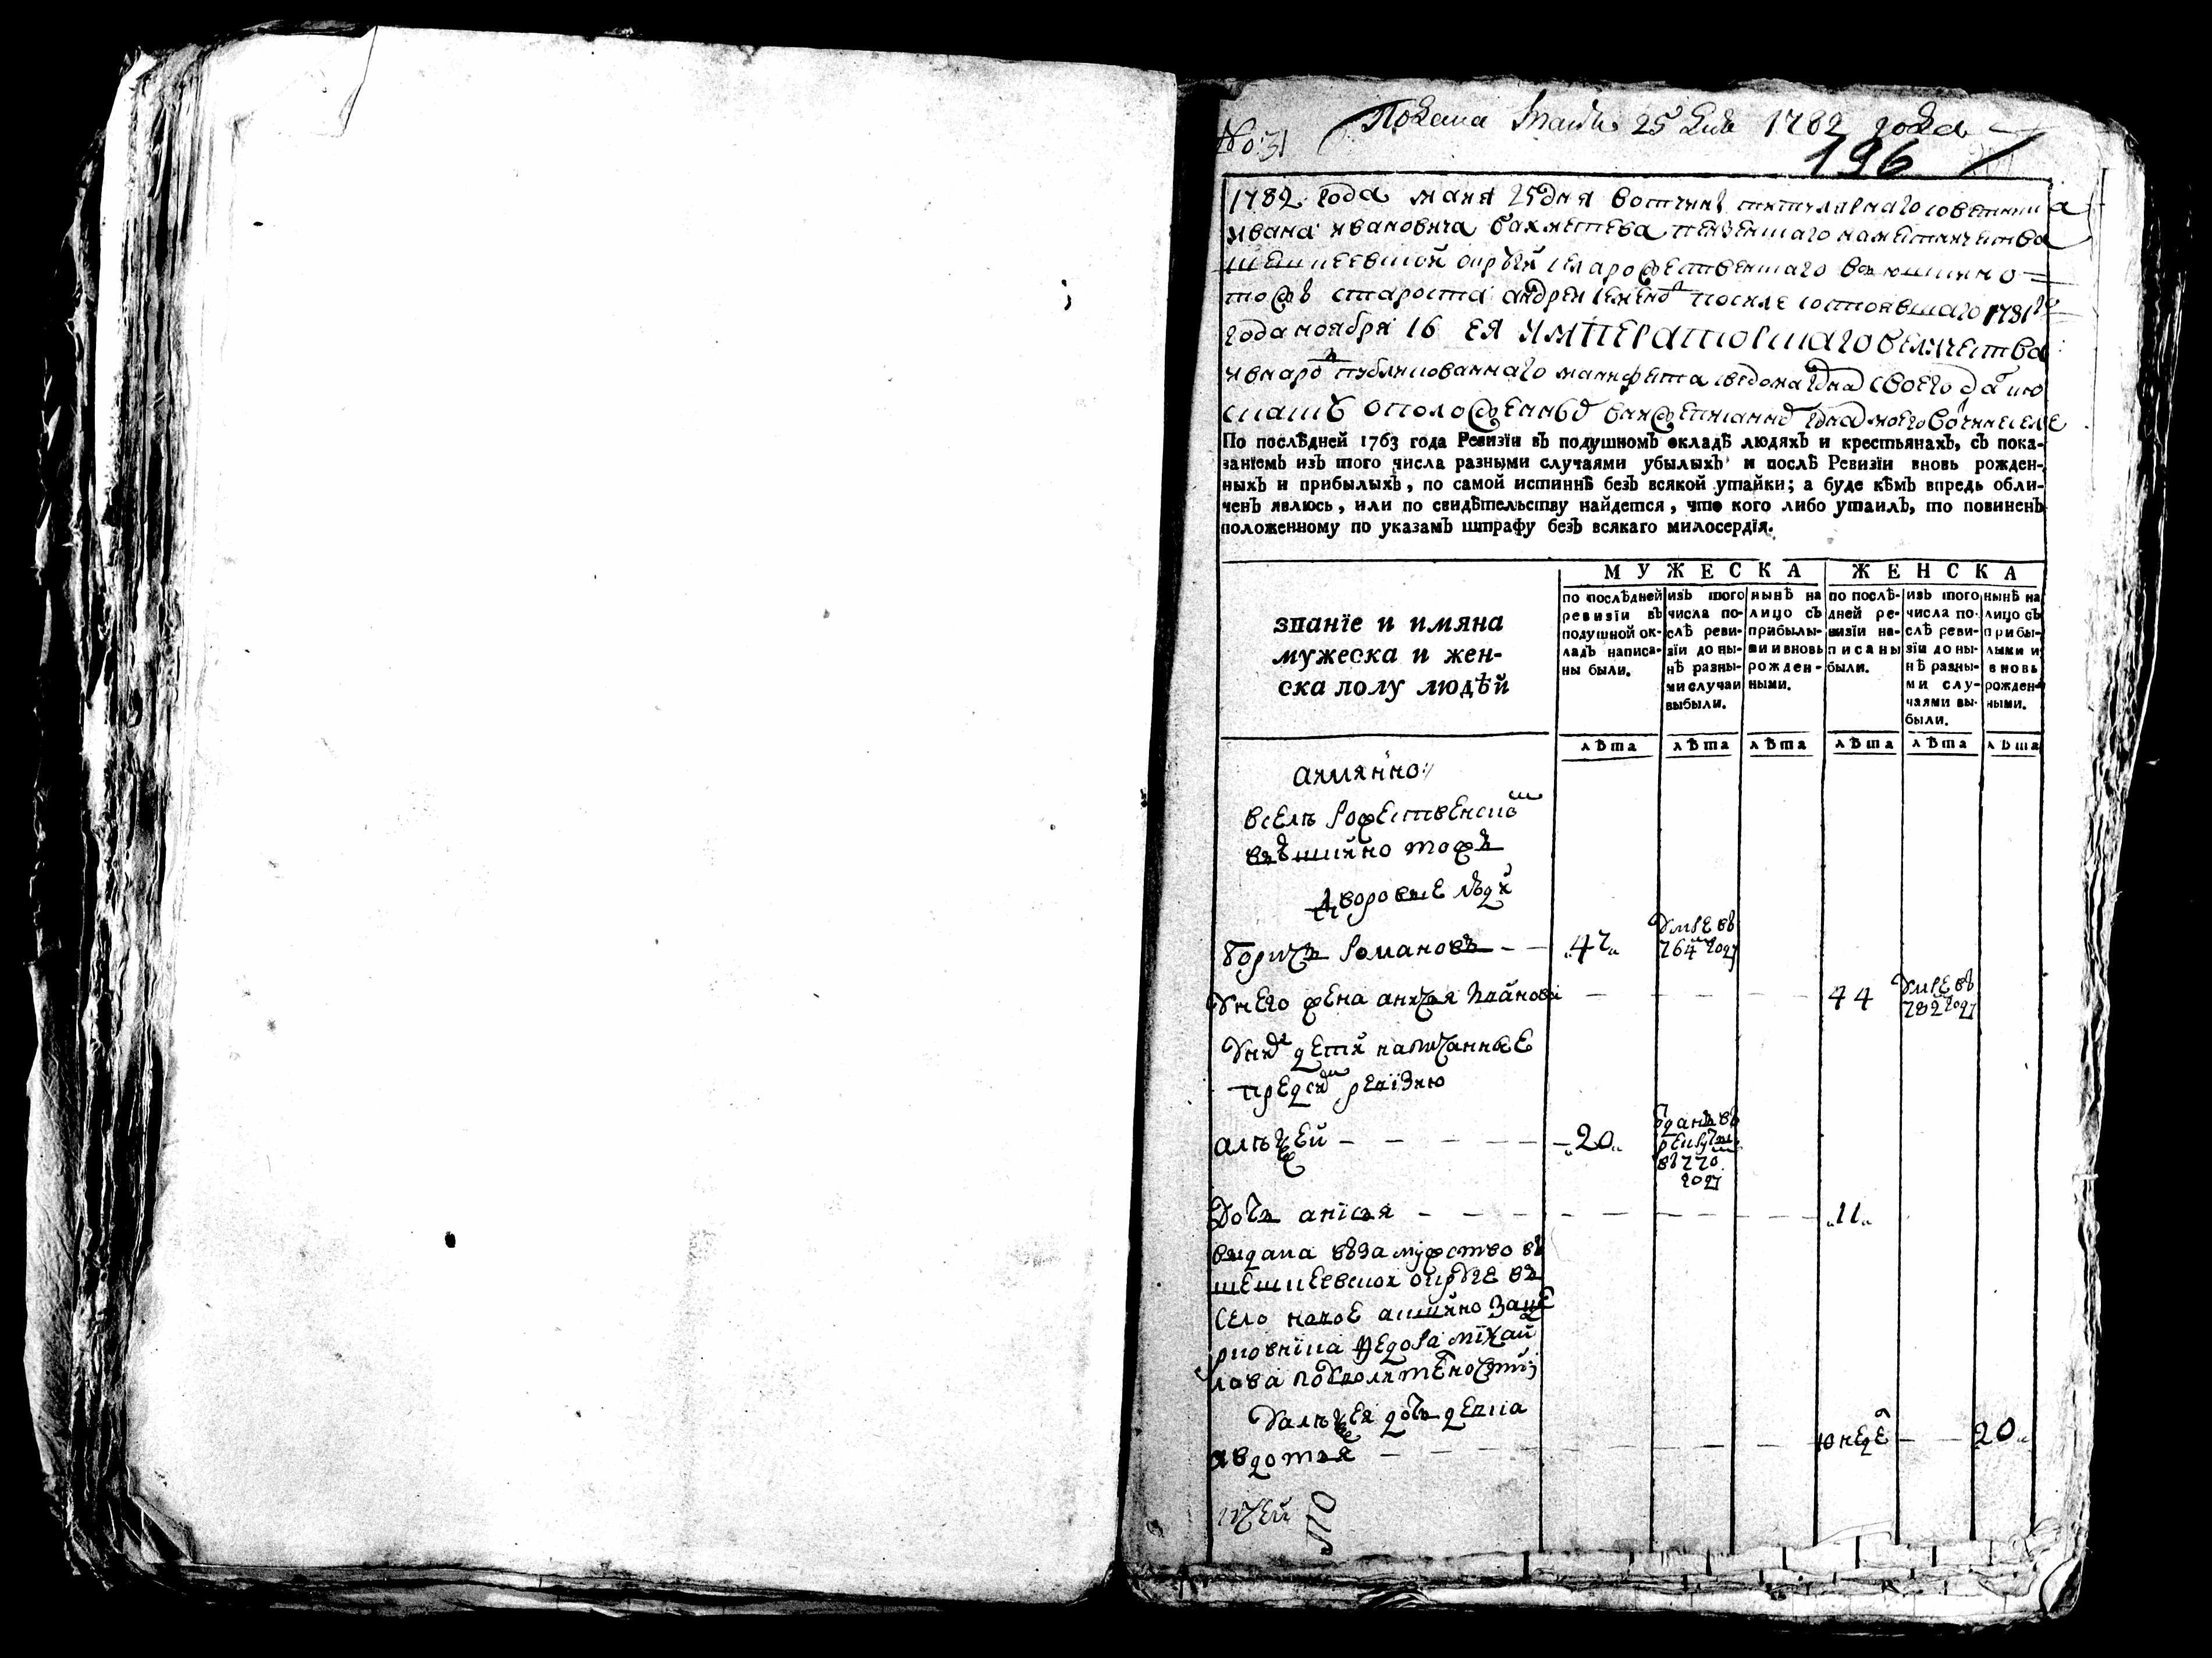 No 31
Подана маия 25 дня 1782 года
196
1782 года маия 25 дня вотчины титулярнаго советника
ивана ивановича бахметева пензенскаго наместничества
шешкеевской округи села рожественскаго
тожъ староста андреи семеновъ после состоявшаго 1781го
года ноября 16 ея императорскаго величества
и в народ публикованнаго манифеста
сказку о положенных
По послѣдней 1763 года Ревизїи въ подушномъ окладѣ людяхъ и крестьянахъ, съ пока-
занїемъ изъ того числа разными случаями убылыхъ и послѣ Ревизїи вновь рожден-
ныхъ и прибылыхъ, по самой истиннѣ безъ всякой утайки; а буде кѣмъ впредь обли-
ченъ явлюсь, или по свидѣтельству найдется, что кого либо утаилъ, то повиненъ
положенному по указамъ штрафу безъ всякаго милосердїя.
званїе и имяна
мужеска и жен-
ска полу людѣй
МУЖЕСКА
по послѣдней
ревизїи въ
подушной ок-
ладъ написа-
ны были.
изъ того
числа по-
слѣ реви-
зїи до ны-
нѣ разны-
ми случаи
выбыли.
нынѣ на
лицо съ
прибылы-
ми и вновь
рожден-
ными.
ЖЕНСКА
по послѣ-
дней ре-
визїи на-
писаны
были.
изъ того
числа по-
слѣ реви-
зїи до ны-
нѣ разны-
ми слу-
чаями вы-
были.
нынѣ на
лицо съ
прибы-
лыми и
вновь
рожден-
ными.
лѣта лѣта лѣта лѣта лѣта лѣта
аимянно
вселѣ рожественском
тожъ
дворовые люди
борисъ романовъ 47 умре въ 764м году
унего жена анисья 44 умре въ 782 году
уних дети написанные
пред сию ревизию
алѣксей 20 отданъ въ рекруты в 770м году
дочь анисья 11
выдана взамужство въ
шешкеевской округе въ
село акшино
федора михаи
лова
Уалѣксея дочь девка
авдотья 20